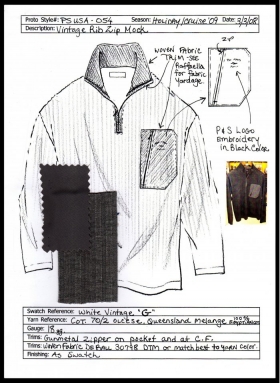 Proto Style#: PSUSA-054 Season: Holiday/cruise '09 Date: 3/3/08
Description: Vintage Rib Zip Mock
woven Fabric
TRIM-SEE
Raffaella
for fabric
yardage.
ZIP
P&S Logo
Embroidery
in Black Color
Swatch Reference: White Vintage "G"
Yarn Reference: Cot. 70/2 Queensland Melange 100%
Gauge: 18 gg.
Trims: Gunmetal zipper on pocket and at C.F.
Trims: Woven Fabric 30798 DTM or match best to yarn color.
Finishing: As Swatch